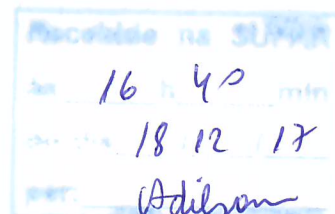 Recebido na SUPRR
às 16 h 40 min
18 12 17
por: Adilson